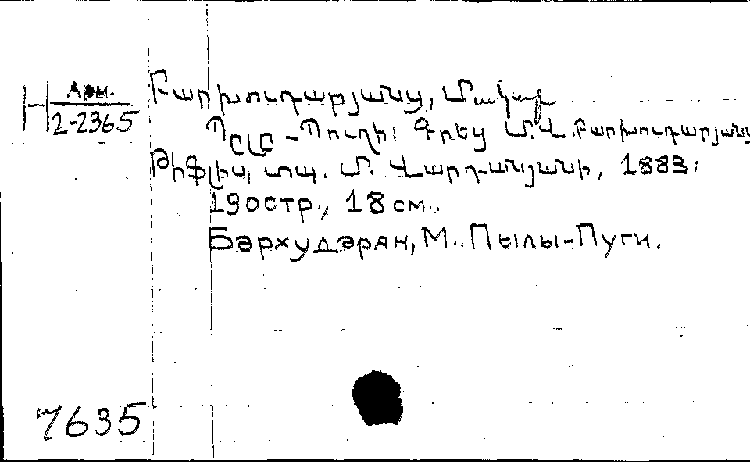 Н Арм.
2-2365
Բարխուդարյանց, Մակար
Պըլը-Պուղի: Գրեց Մ.Վ. Բարխուդարյանց
Թիֆլիս, տպ. Մ. Վարդանյանի, 1883:
190стр., 18см.
Бархударян, М. Пылы-Пуги.
7635